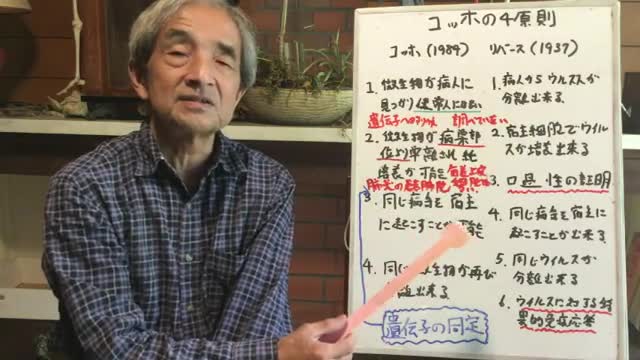 コッホの4原則
コッホ(1984) リバース(1937)
1. 微生物が病人に
見つかり健常人にはない
遺伝子への 調べていない
2. 微生物が病巣部
位より単離され純
培養が可能
3. 同じ病気を宿主
に起こすことが可能
4. 同じ 物が再び
出来る
遺伝子の同定
1. 病人からウルスが
分離出来る
2. 宿主細胞でウイル
スが培養出来る
3. 口過性の証明
4. 同じ病気を宿主に
起こすことが出来る
5. 同じウイルスが
分離出来る
6. ウイルスに対
異的免疫応答